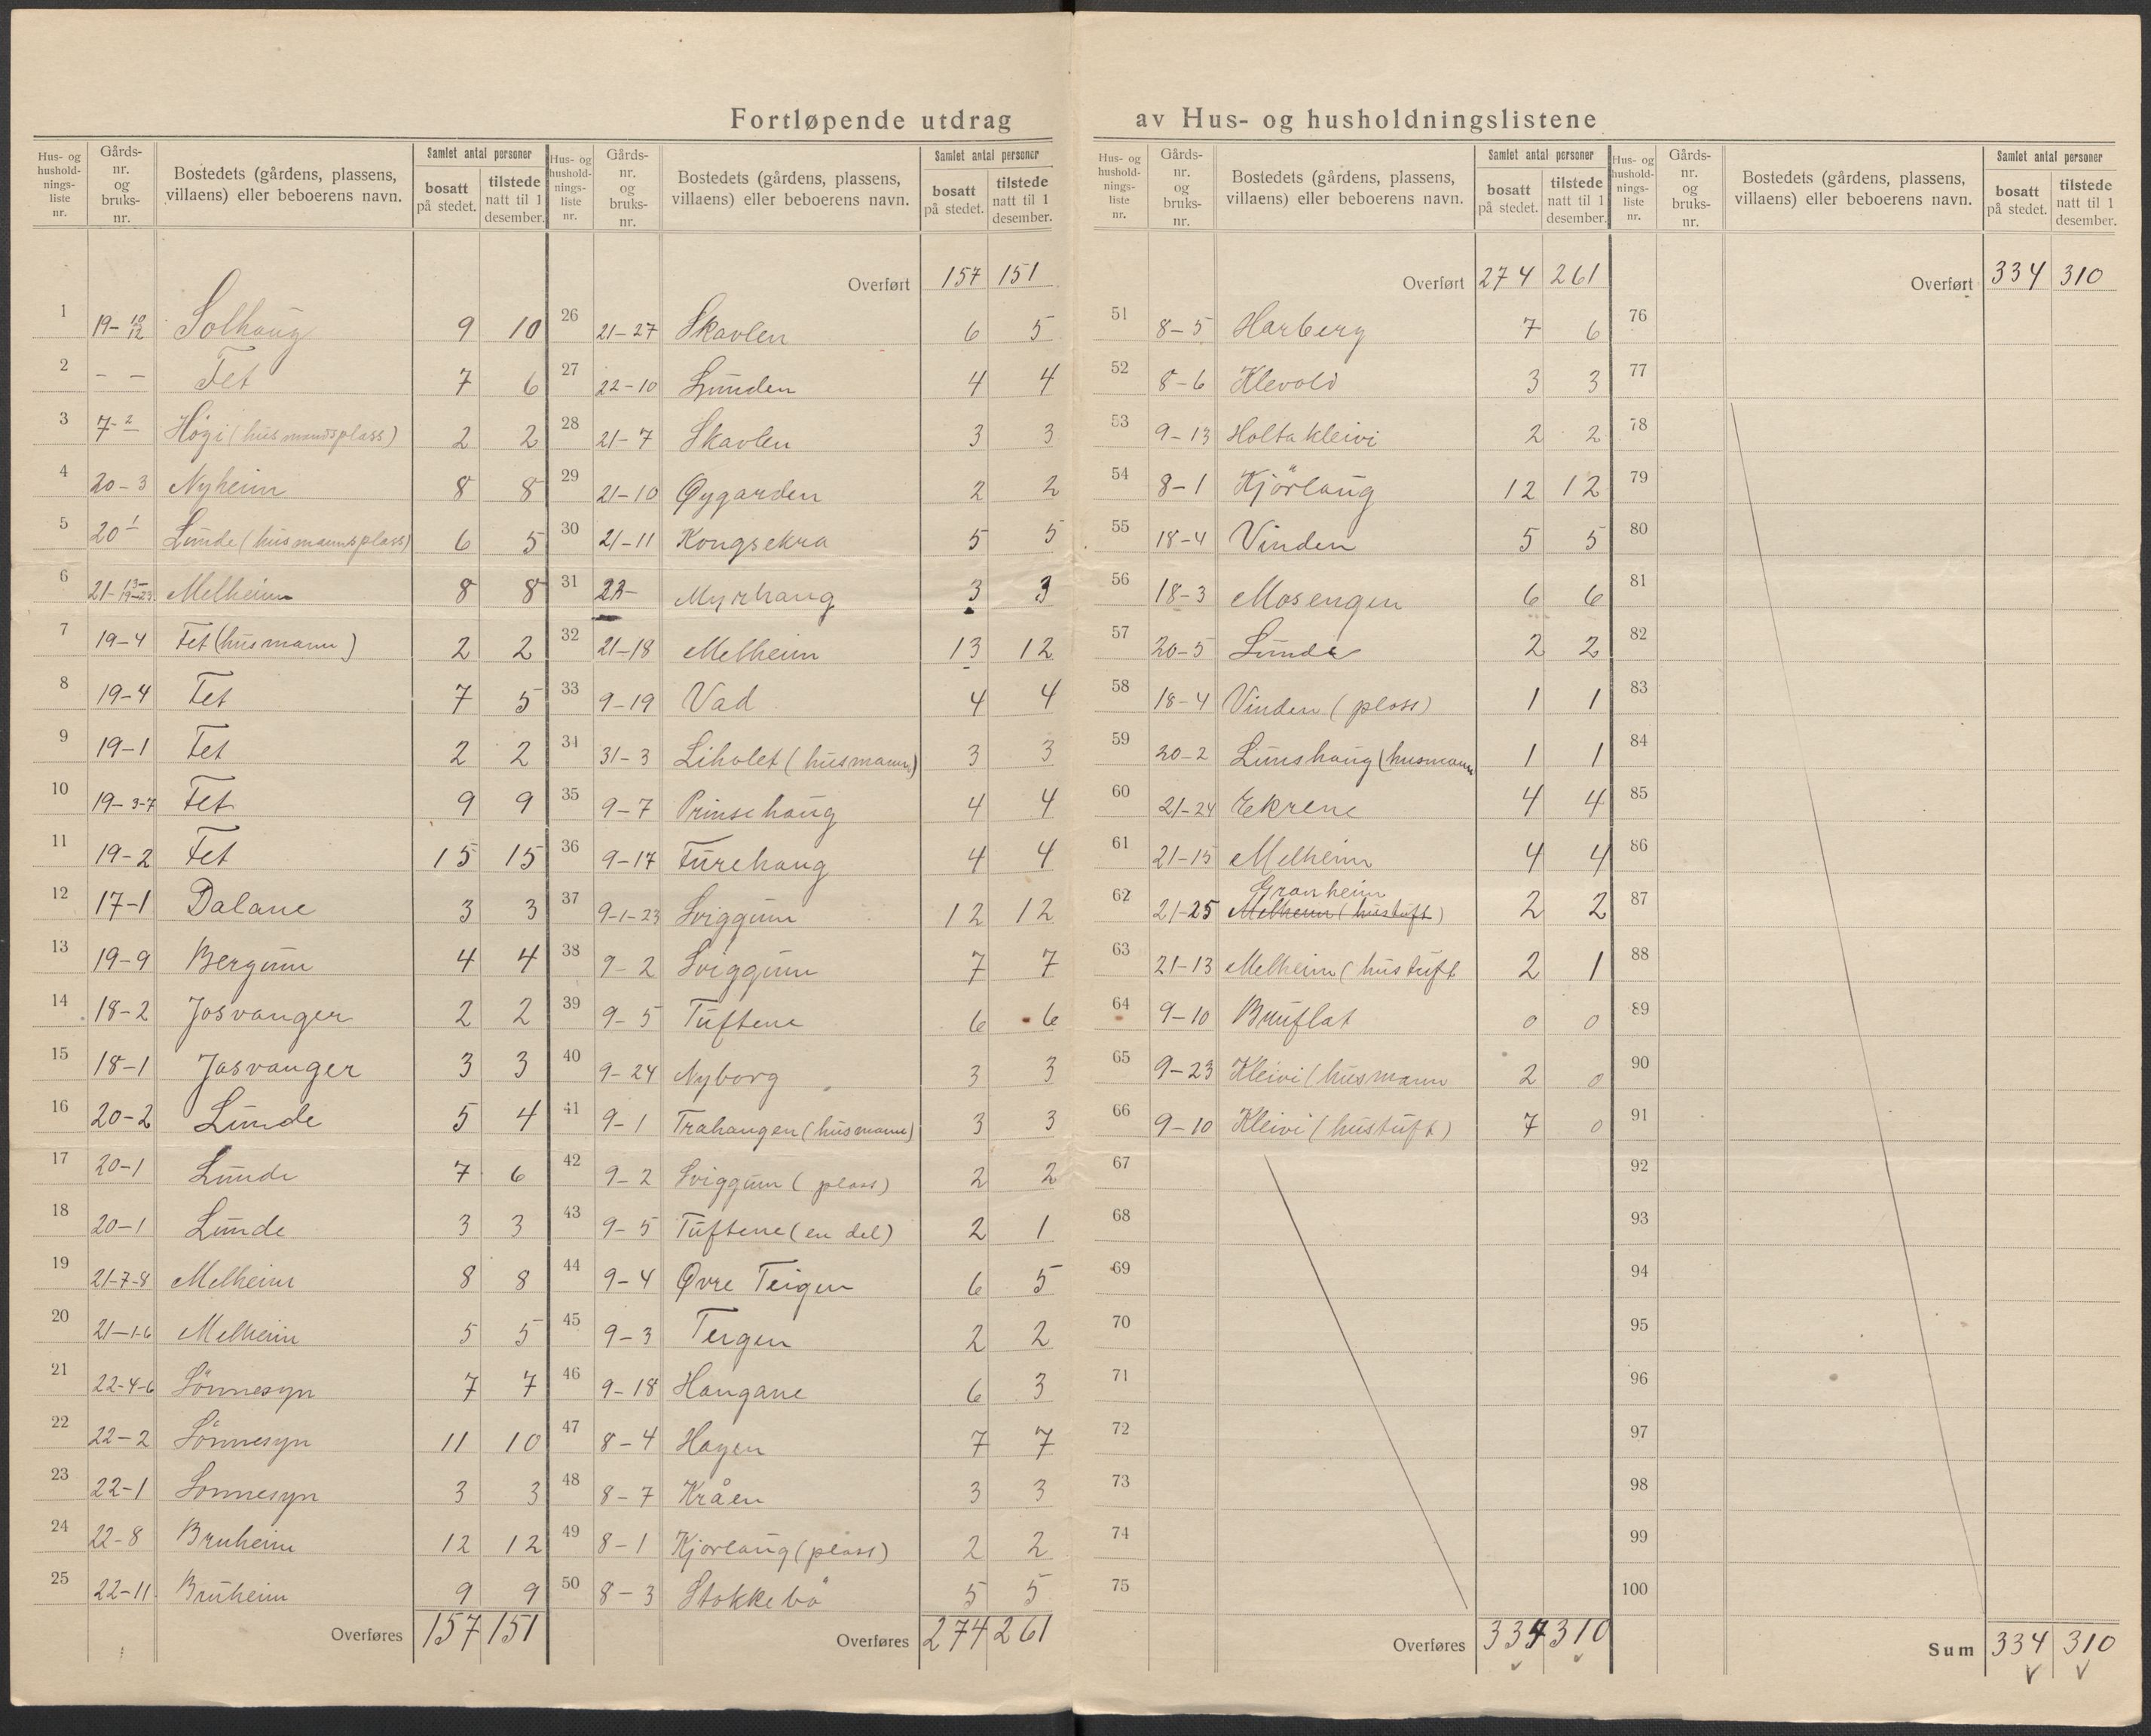 Fortløpende utdrag av Hus- og husholdningslistene
Hus- og husholdnings- liste nr. | Gårds- nr. og bruks- nr. | Bostedets (gårdens, plassens, villaens) eller beboerens navn. | Samlet antal personer | bosatt på stedet. | tilstede natt til 1 desember.
1 19-10/12 Solhaug 9 10
2 – – Fet 7 6
3 7-2 Høgi (husmandsplass) 2 2
4 20-3 Nyheim 8 8
5 20-1 Lunde (husmannsplass) 6 5
6 21-13-19-23 Melheim 8 8
7 19-4 Fet (husmann) 2 2
8 19-4 Fet 7 5
9 19-1 Fet 2 2
10 19-3-7 Fet 9 9
11 19-2 Fet 15 15
12 17-1 Dalane 3 3
13 19-9 Bergum 4 4
14 18-2 Josvanger 2 2
15 18-1 Jasvanger 3 3
16 20-2 Lunde 5 4
17 20-1 Lunde 7 6
18 20-1 Lunde 3 3
19 21-7-8 Melheim 8 8
20 21-1-6 Melheim 5 5
21 22-4-6 Sönnesyn 7 7
22 22-2 Sönnesyn 11 10
23 22-1 Sonnesyn 3 3
24 22-8 Bruheim 12 12
25 22-11 Bruheim 9 9
Overføres 157 151
Hus- og husholdnings- liste nr. | Gårds- nr. og bruks- nr. | Bostedets (gårdens, plassens, villaens) eller beboerens navn. | Samlet antal personer | bosatt på stedet. | tilstede natt til 1 desember.
Overført 157 151
26 21-27 Skavlen 6 5
27 22-10 Lunden 4 4
28 21-7 Skavlen 3 3
29 21-10 Øygarden 2 2
30 21-11 Kongsekra 5 5
31 22- Myrhaug 3 3
32 21-18 Melheim 13 12
33 9-19 Vad 4 4
34 31-3 Liholet (husmann) 3 3
35 9-7 Prinsehaug 4 4
36 9-17 Furehaug 4 4
37 9-1-23 Sviggum 12 12
38 9-2 Sviggum 7 7
39 9-5 Tuftene 6 6
40 9-24 Nyborg 3 3
41 9-1 Trahaugen (husmann) 3 3
42 9-2 Sviggum (plass) 2 2
43 9-5 Tuftene (en del) 2 1
44 9-4 Øvre Teigen 6 5
45 9-3 Teigen 2 2
46 9-18 Haugane 6 3
47 8-4 Hagen 7 7
48 8-7 Kråen 3 3
49 8-1 Kjorlaug (plass) 2 2
50 8-3 Stokkebö 5 5
Overføres 274 261
Hus- og husholdnings- liste nr. | Gårds- nr. og bruks- nr. | Bostedets (gårdens, plassens, villaens) eller beboerens navn. | Samlet antal personer | bosatt på stedet. | tilstede natt til 1 desember.
Overført 274 261
51 8-5 Harberg 7 6
52 8-6 Klevold 3 3
53 9-13 Holtakleivi 2 2
54 8-1 Kjörlaug 12 12
55 18-4 Vinden 5 5
56 18-3 Mosengen 6 6
57 20-5 Lunde 2 2
58 18-4 Vinden (plass) 1 1
59 20-2 Lunshaug (husmann 1 1
60 21-24 Ekrene 4 4
61 21-15 Melheim 4 4
Granheim
62 21-25 Melheim (hustuft) 2 2
63 21-13 Melheim (hustuft 2 1
64 9-10 Bruflat 0 0
65 9-23 Kleivi (husmann 2 0
66 9-10 Kleivi (hustuft) 7 0
67
68
69
70
71
72
73
74
75
Overføres 334 310
Hus- og husholdnings- liste nr. | Gårds- nr. og bruks- nr. | Bostedets (gårdens, plassens, villaens) eller beboerens navn. | Samlet antal personer | bosatt på stedet. | tilstede natt til 1 desember.
Overført 334 310
76
77
78
79
80
81
82
83
84
85
86
87
88
89
90
91
92
93
94
95
96
97
98
99
100
Sum 334 310